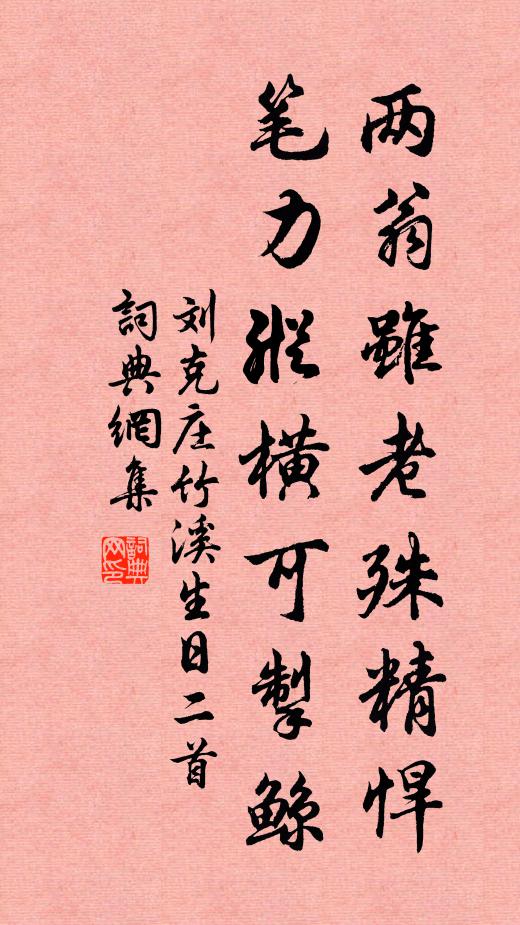 两翁雖老殊精悍
笔力縱橫可掣鲸
刘克庄竹溪生日二首
詞典網集
詞典网印